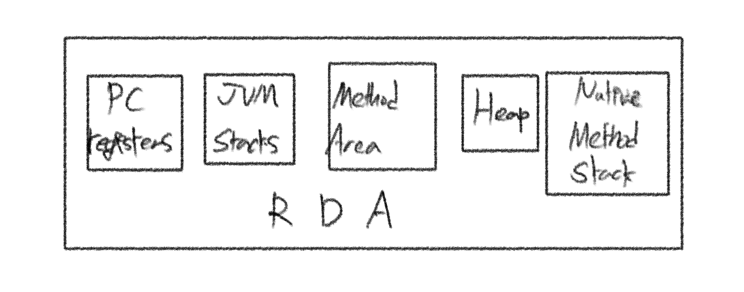 PC
registers
JVM
Stacks
Method
Area
Heap
Native
Method
Stack
R D A